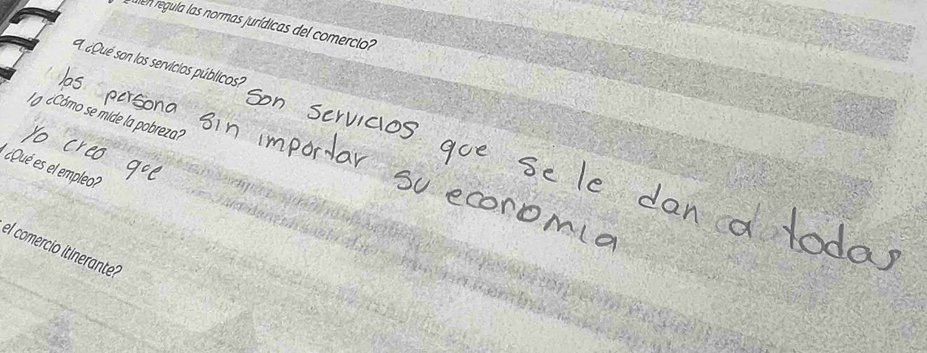 regula las normas jurídicas del comercio?
9 ¿Qué son los servicios públicos? Son servicios que se le dan a todas
los persona sin importar su economia
10 ¿Cómo se mide la pobreza?
Yo creo que
¿Qué es el empleo?
el comercio itinerante?